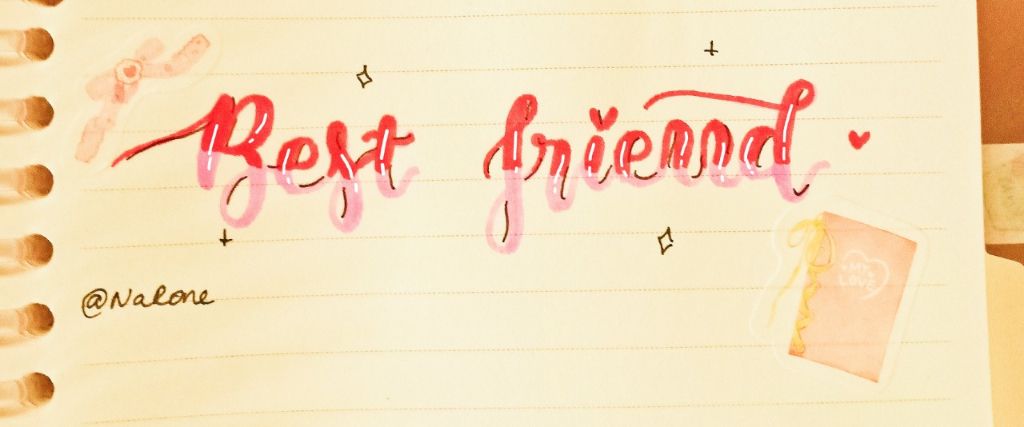 Best friend
@NaRone
MY
LOVE